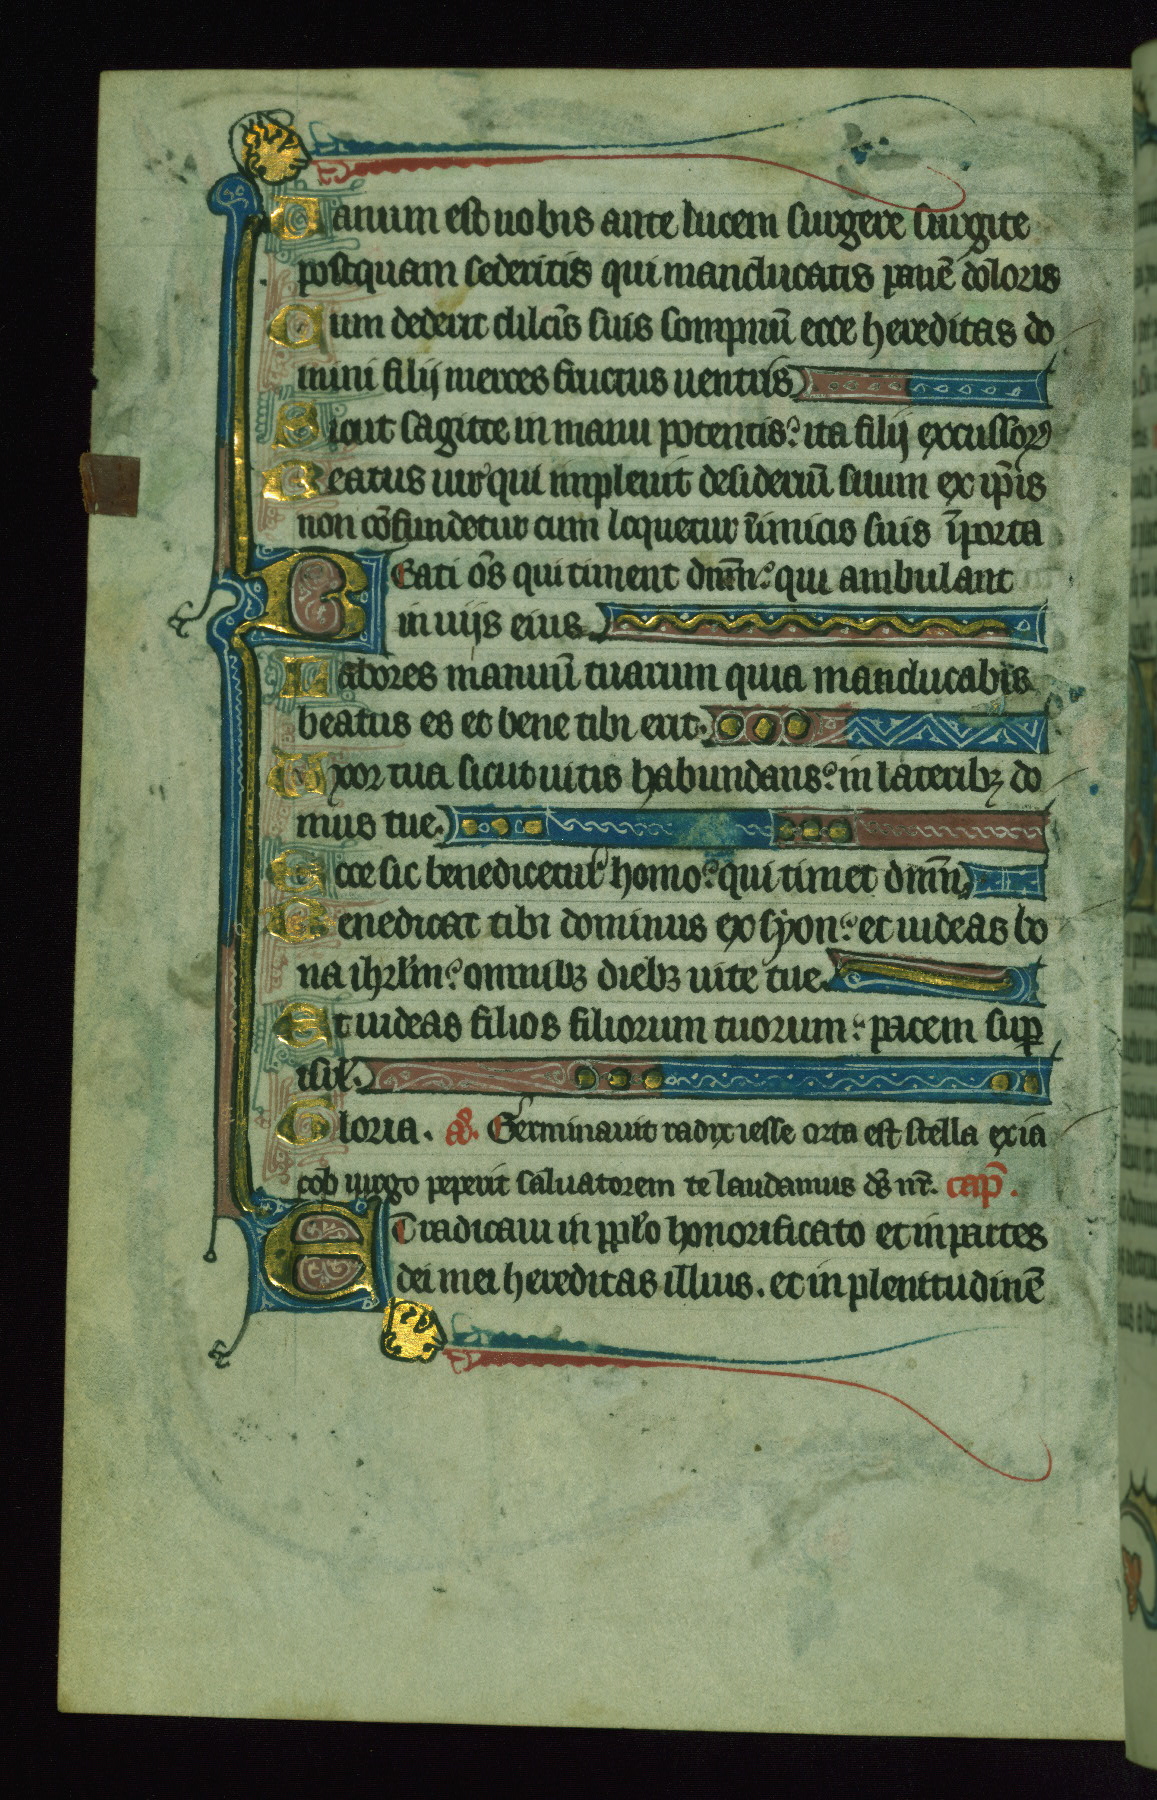 Uanum est uobis ante lucem surgere surgite
postquam sederitis qui manducatis panē doloris
Cum dederit dilcīs suis sompnū ecce hereditas do
mini filij merces fructus uentris
Sicut sagitte in manu potentis: ita filij excussoꝝ
Beatus uir qui impleuit desideriū suum ex ip̄is
non cōfundetur cum loquetur īimicis suis ī porta
Beati ōs qui timent dnm̄: qui ambulant
in uijs eius.
Labores manuū tuarum quia manducabis
beatus es et bene tibi erit.
Uxor tua sicut uitis habundans: in lateribꝫ do
mus tue.
Ecce sic benedicetur homo: qui timet dnm̄
Benedicat tibi dominus ex syon: et uideas bo
na ihrlm̄: omnibꝫ diebꝫ uite tue.
Et uideas filios filiorum tuorum: pacem sup̄
isrl̄.
Gloria. añ. Germinauit radix iesse orta est stella ex ia
cob uirgo peperit saluatorem te laudamus ds̄ nr̄. cap̄.
Et radicaui in pplo honorificato et in partes
dei mei hereditas illius. et in plenitudinē